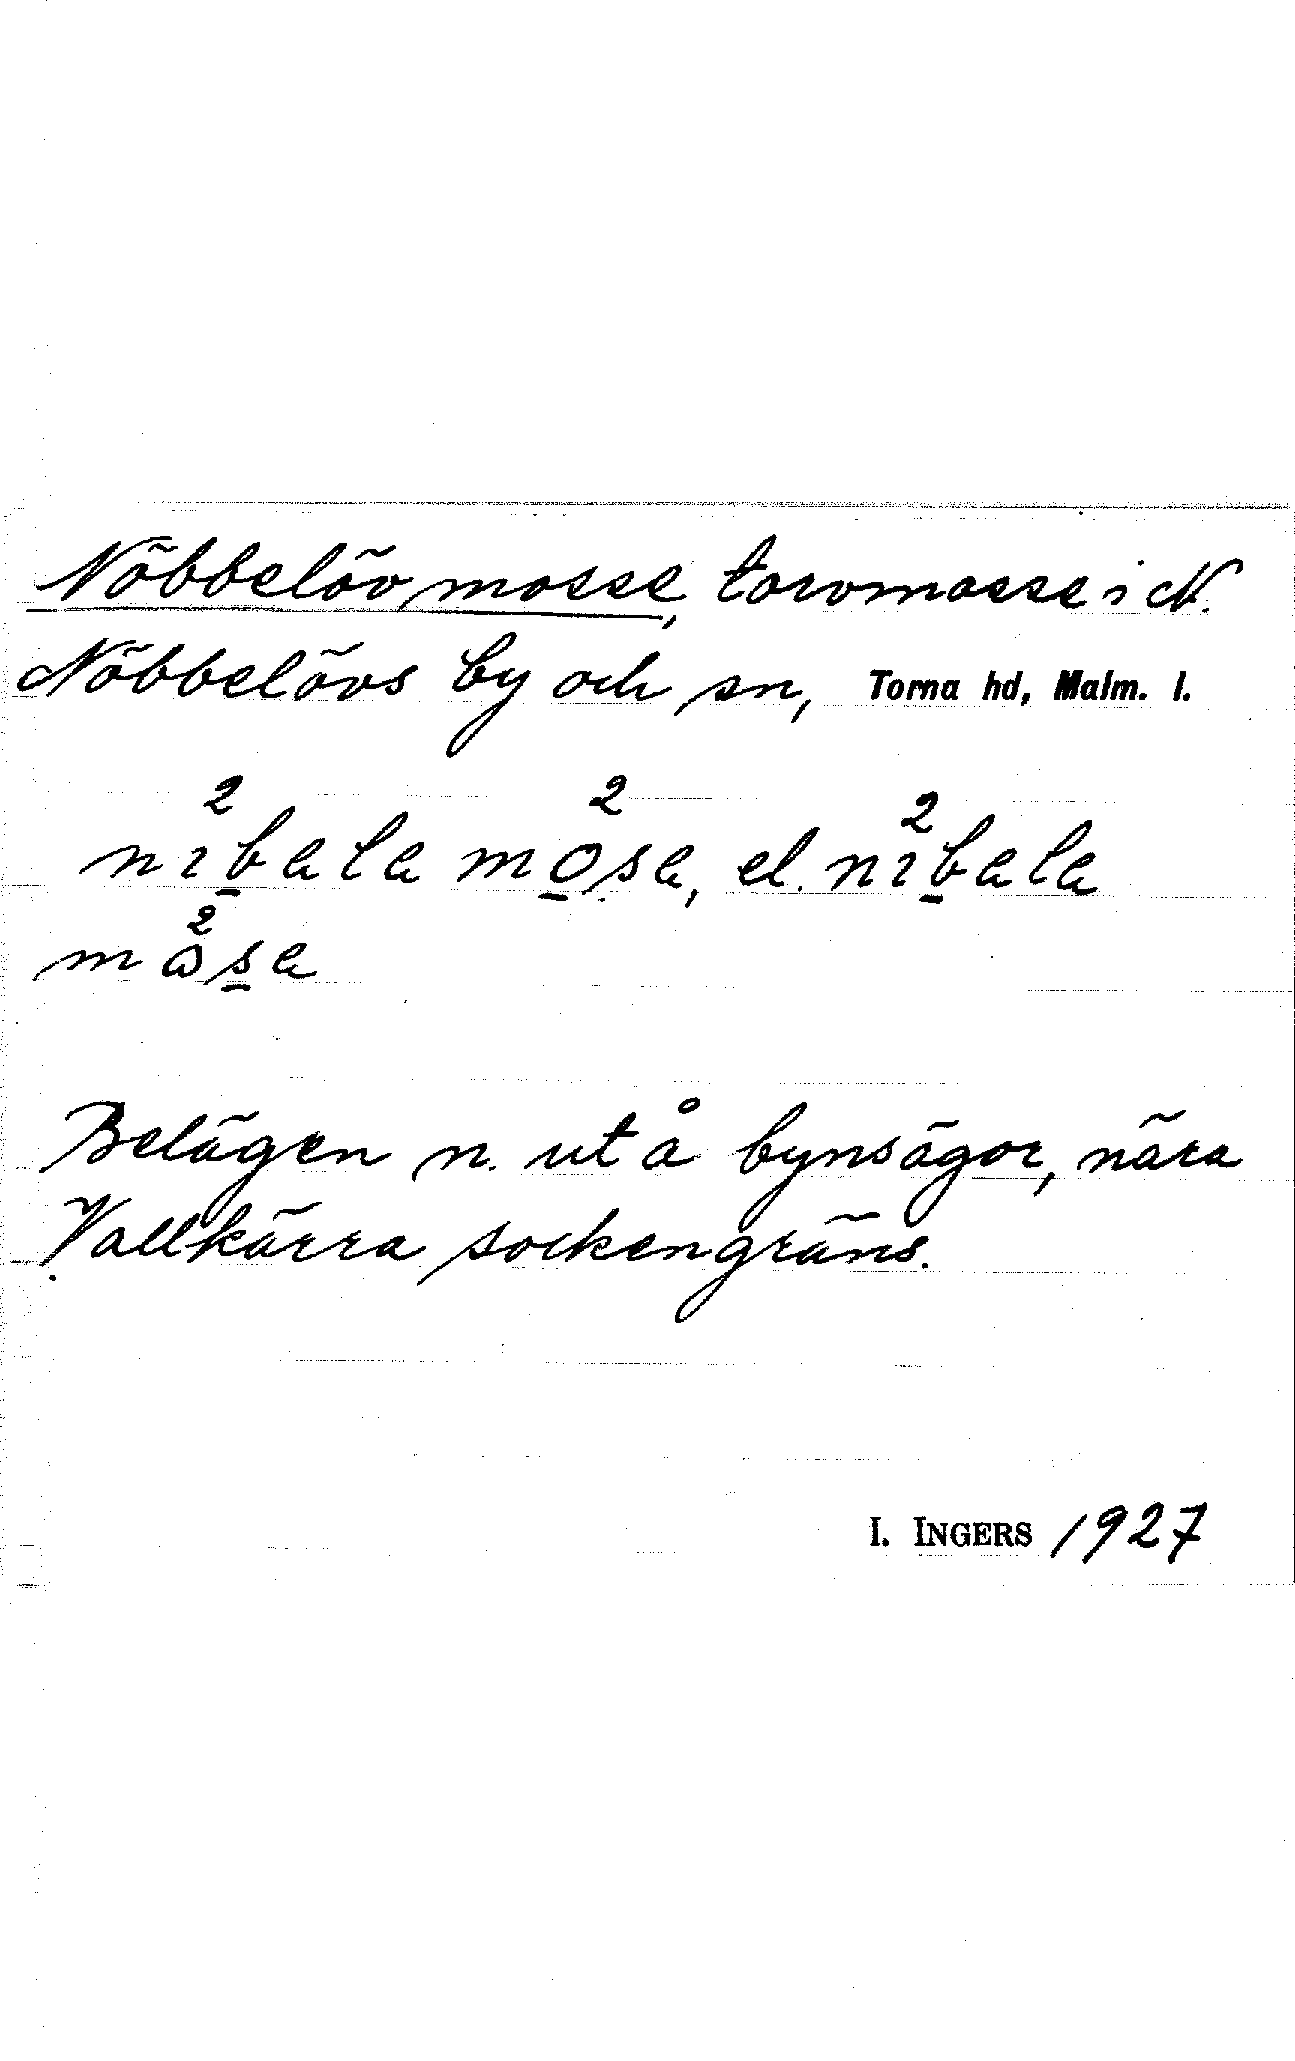 Nöbbelöv mosse, torvmosse i N.
Nöbbelövs by och sn, Torna hd, Malm. l.
nı²bala mo²sa, el. nı²bala
må²sa
Belägen n. ut å bynsägor, nära
Vallkärra sockengräns.
I. INGERS 1927